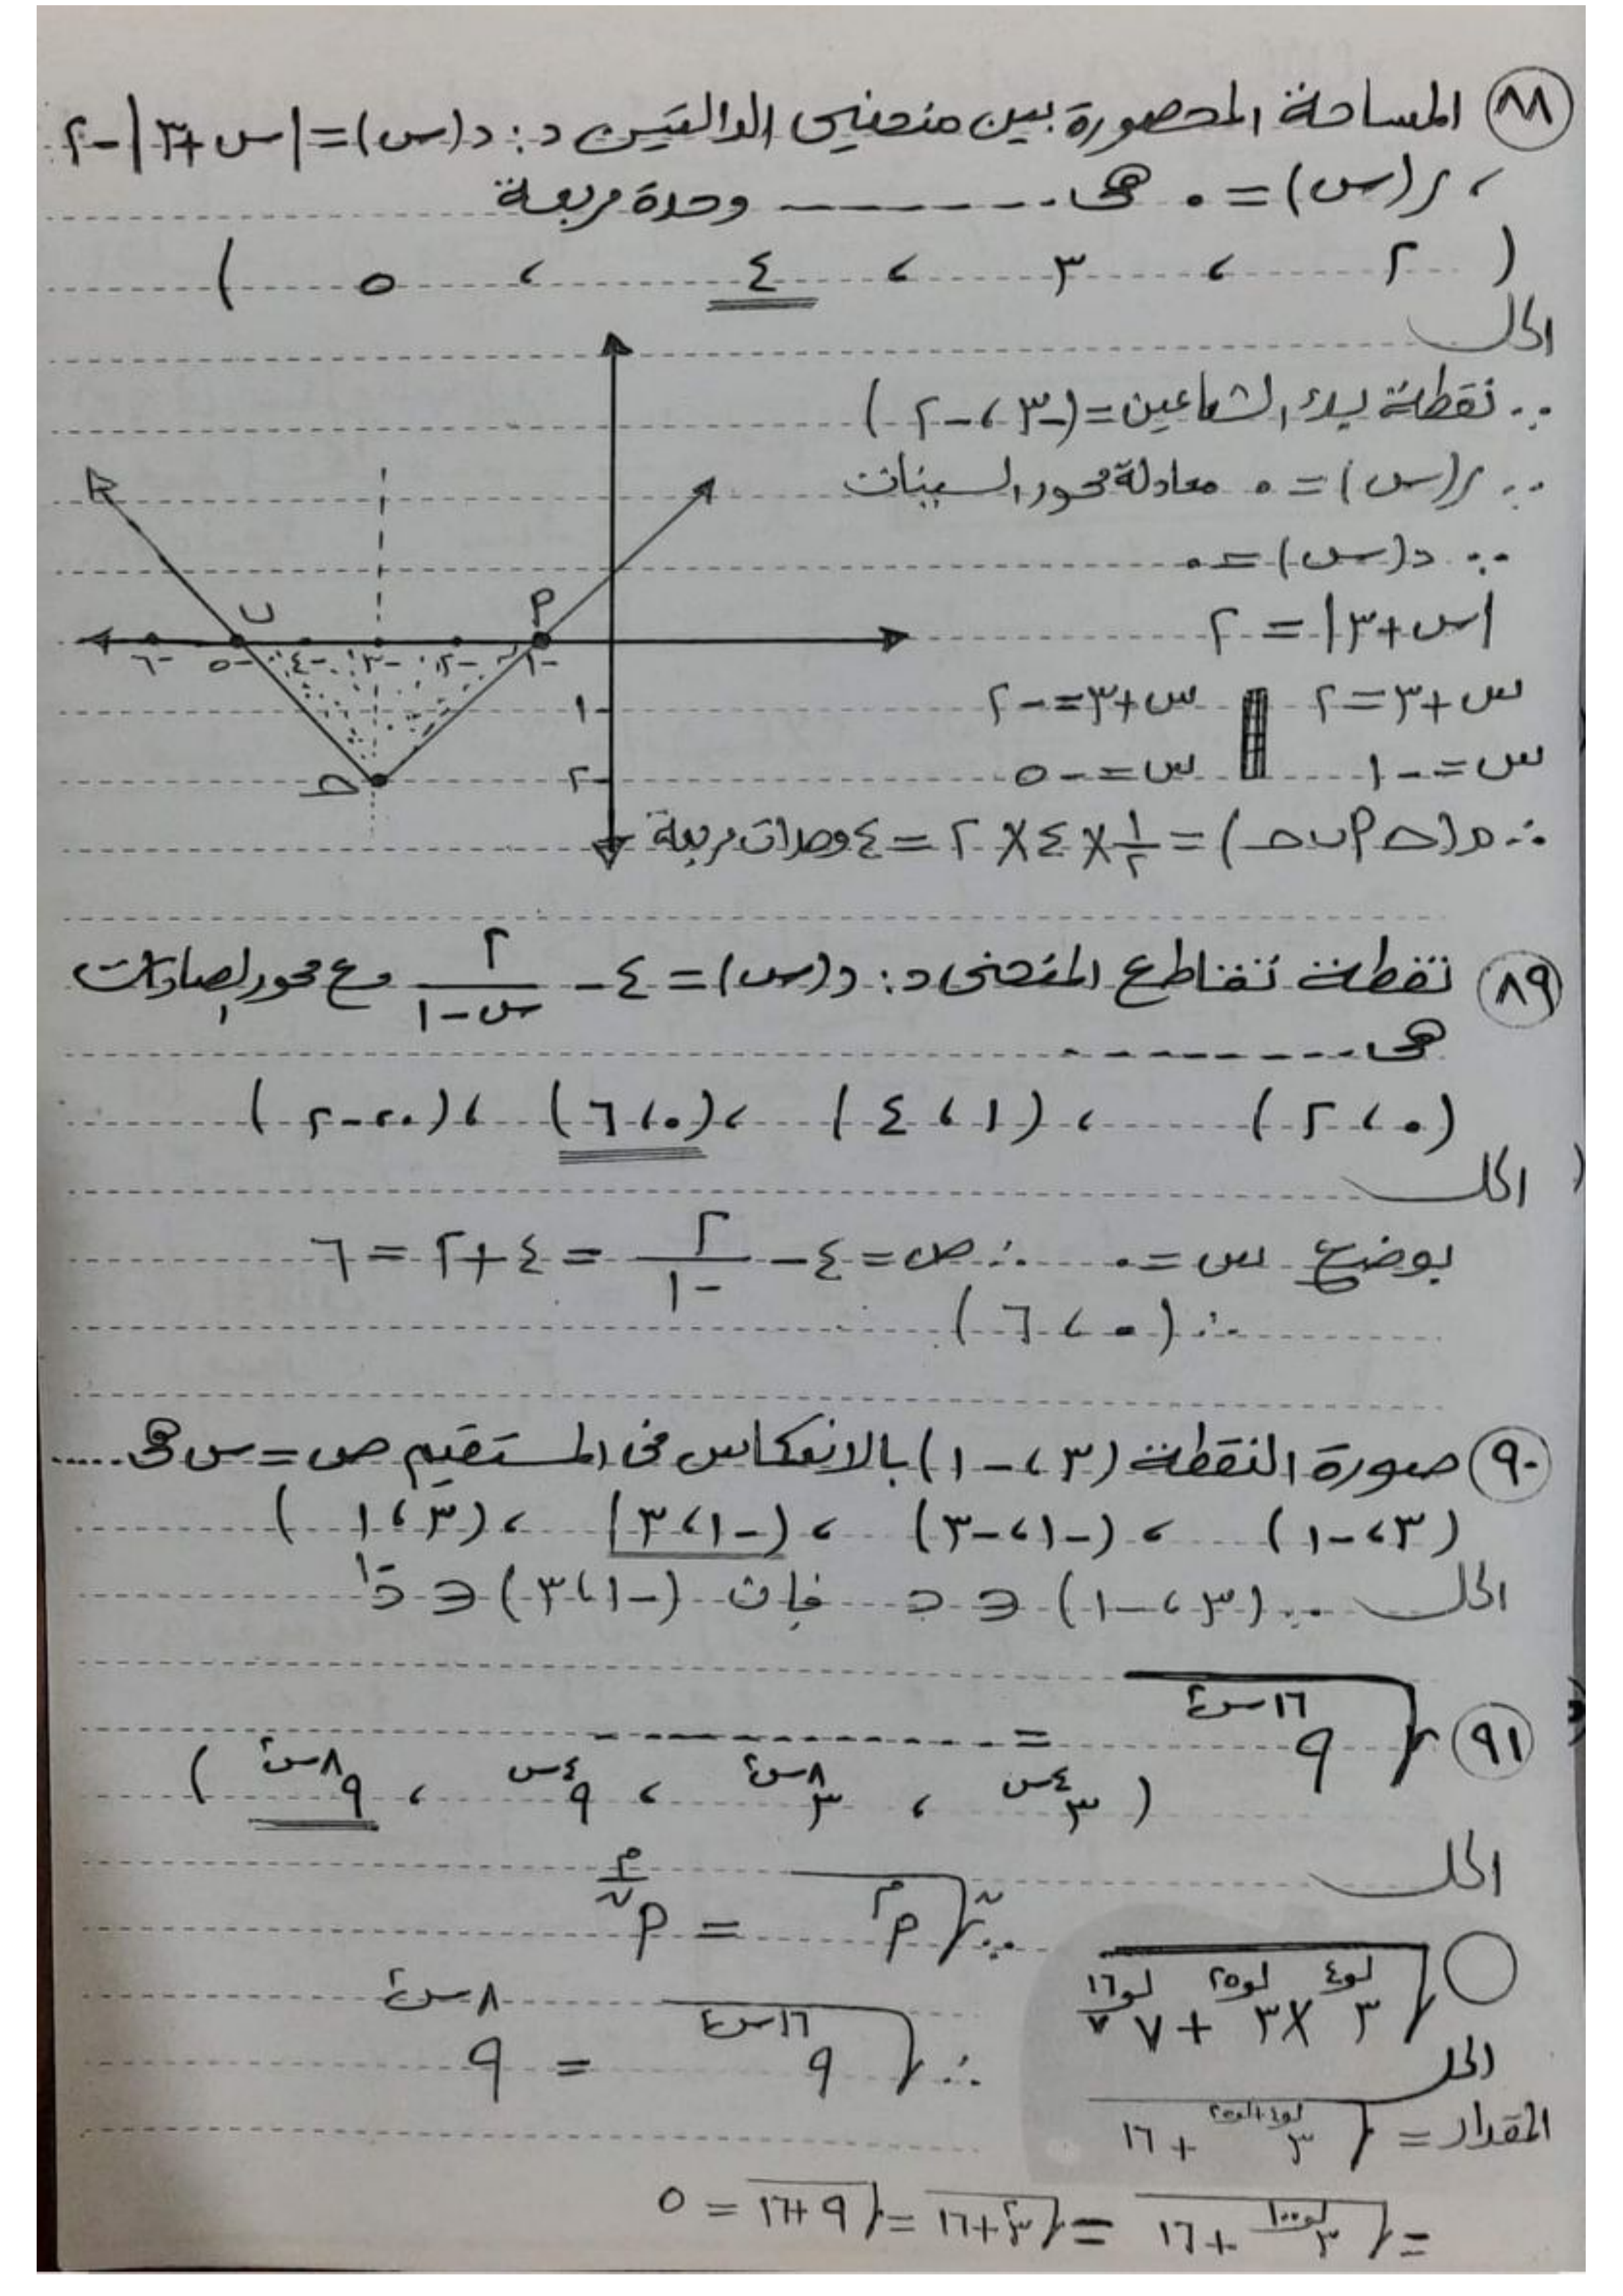 ٨٨ المساحة المحصورة بين منحنيى الدالتين د: د(س)=|س+٣|-٢
، ر(س)=٠ هى -------- وحدة مربعة
( ٢ ، ٣ ، ٤ ، ٥ )
الحل
∵ نقطة بدء الشعاعين=(-٣، -٢)
∵ ر(س)=٠ معادلة محور السينات
∴ د(س)=٠
|س+٣|=٢
س+٣=٢ س+٣=-٢
س=-١ س=-٥
∴ م(△ أ ب ح)=١/٢×٤×٢=٤ وحدات مربعة
ب أ
-٦ -٥ -٤ -٣ -٢ -١
-١
-٢
ح
٨٩ نقطة تقاطع المنحنى د: د(س)=٤-٢/(س-١) مع محور الصادات
هى --------
(٠، ٢) ، (١، ٤) ، (٠، ٦) ، (٠، -٢)
الحل
بوضع س=٠ ∴ ص=٤-٢/-١=٤+٢=٦
∴ (٠، ٦)
٩٠ صورة النقطة (٣، -١) بالانعكاس فى المستقيم ص=س هى .....
(٣، -١) ، (-١، -٣) ، (-١، ٣) ، (٣، ١)
الحل ∵ (٣، -١) ∈ د فإن (-١، ٣) ∈ د⁻¹
٩١ √(٩^(١٦س^٤)) = -----------
( ٣^(٤س) ، ٣^(٨س^٤) ، ٩^(٤س) ، ٩^(٨س^٤) )
الحل
∵ ⁿ√(أ^م) = أ^(م/ن)
∴ √(٩^(١٦س^٤)) = ٩^(٨س^٤)
√(٣^(لو٤)×٣^(لو٢٥)+٧^(لو٧ ١٦))
الحل
المقدار = √(٣^(لو٤+لو٢٥)+١٦)
= √(٣^(لو١٠٠)+١٦) = √(٣^٢+١٦) = √(٩+١٦) = ٥